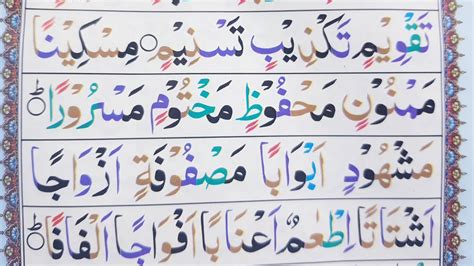 تَقْوِيْمٍ تَكْذِيْبٍ تَسْنِيْمٍ ○ مِسْكِيْنًا
مَمْنُوْنٍ مَحْفُوْظٍ مَخْتُوْمٍ مَسْرُوْرًا ○ؕ
مَشْهُوْدٍ اَبْوَابًا مَصْفُوْفَةٍ اَزْوَاجًا
اَشْتَاتًا اِطْعٰمٌ اَعْنَابًا اَفْوَاجًا اَلْفَافًا ○ؕ